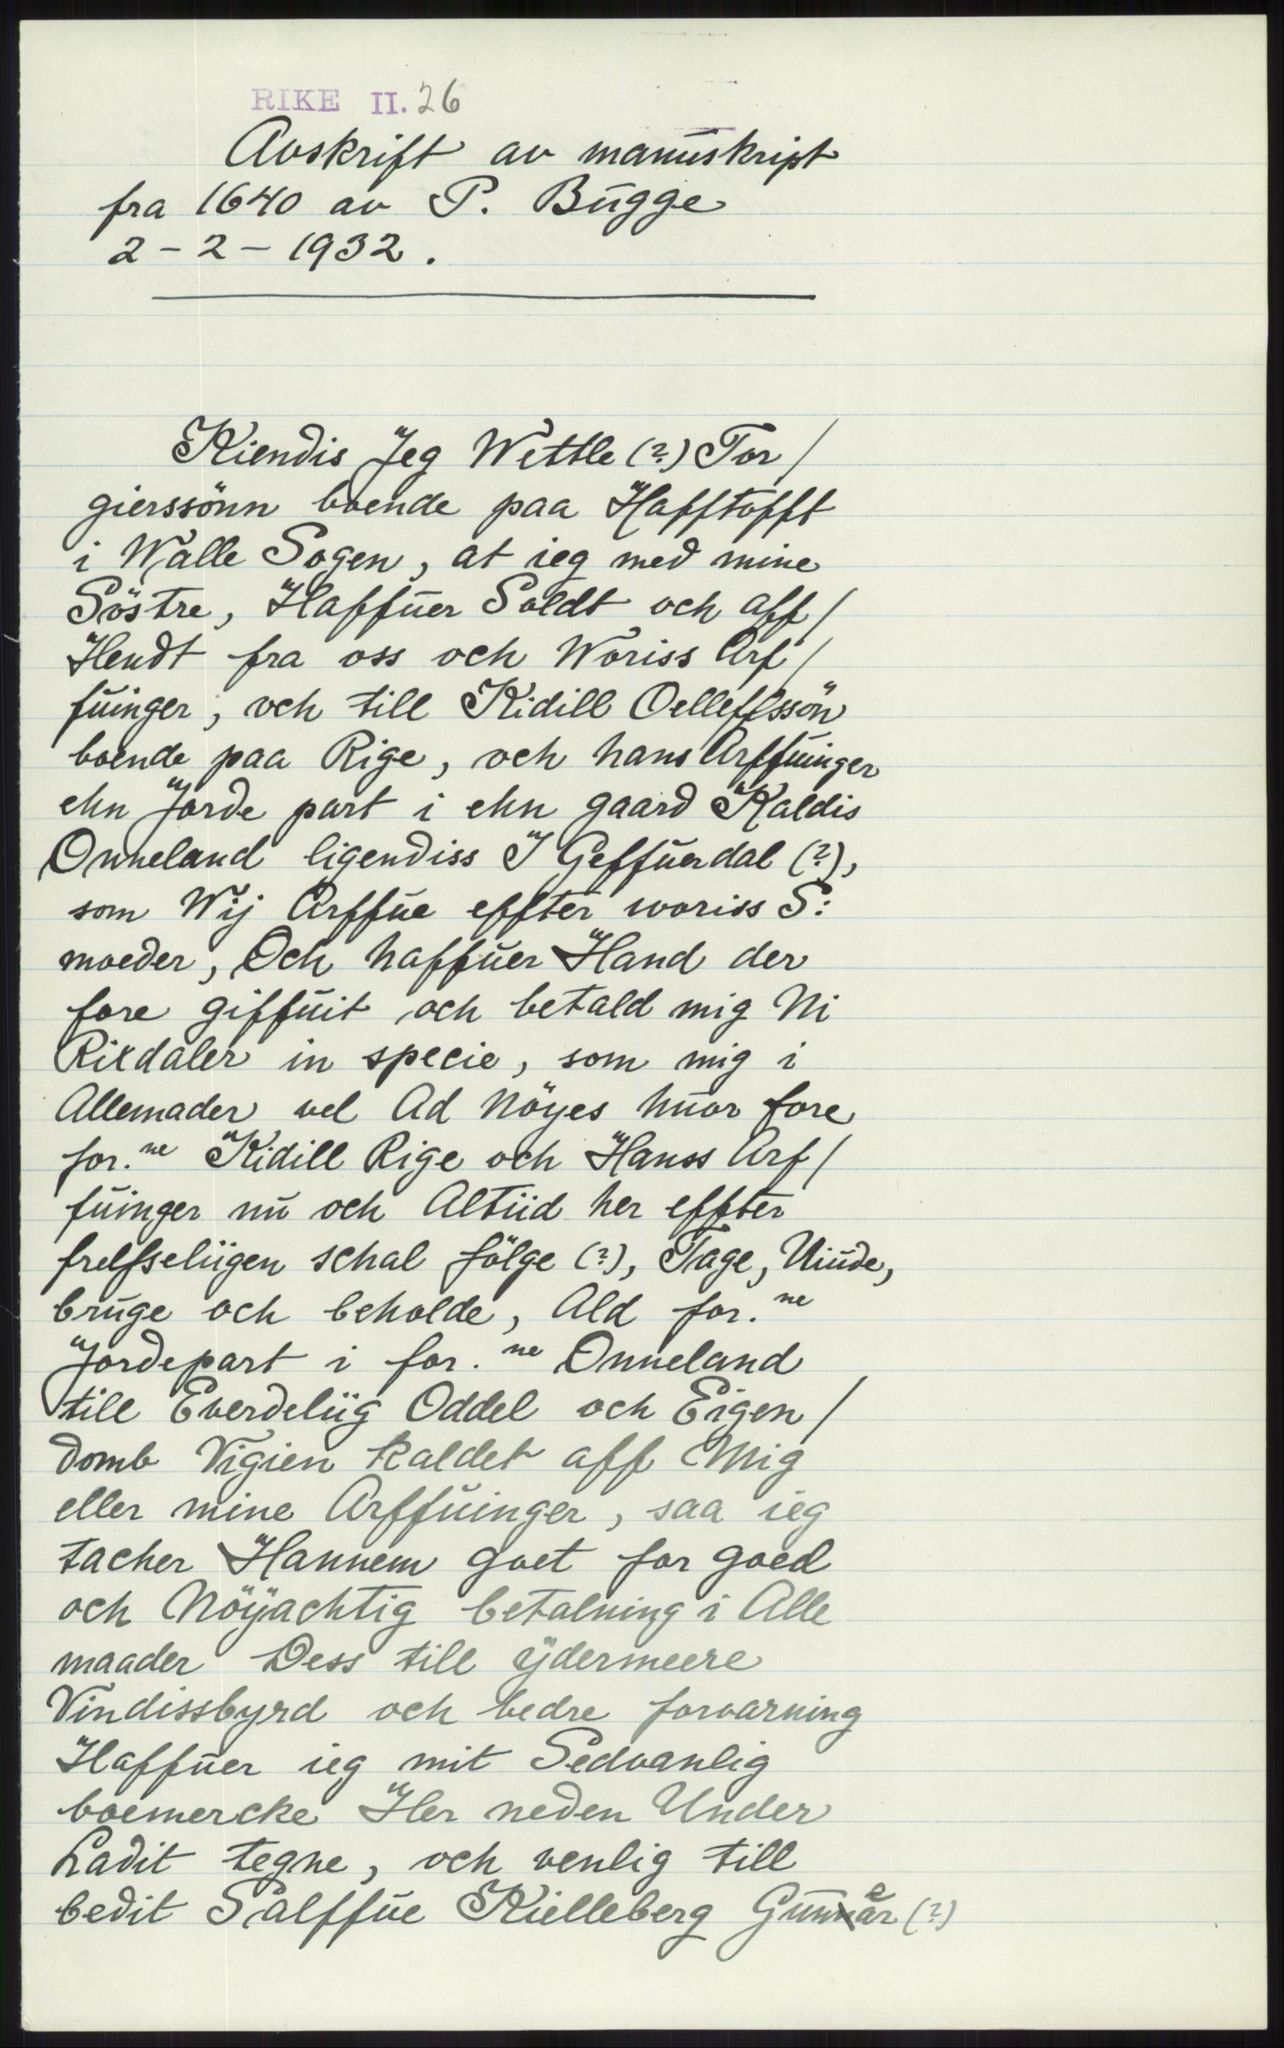 RIKE II. 26
Avskrift av manuskript
fra 1640 av P. Bugge
2 - 2 - 1932.
Kiendis Jeg Wettle (?) Tor/
gierssönn boende paa Hafftofft
i Walle Sogen, at ieg med mine
Söstre, Haffuer Soldt och aff/
Hendt fra oss och Woriss Arf/
fuinger, och till Kidill Oelleffssön
boende paa Rige, och hans Arffuinger
ehn Jorde part i ehn gaard Kaldis
Onneland ligendiss I Geffuerdal (?),
som Wij Arffue effter woriss S:
moeder, Och haffuer Hand der
fore giffuit och betald mig Ni
Rixdaler in specie, som mig i
Allemader vel Ad Nöyes huor fore
for.ne Kidill Rige och Hanss Arf/
fuinger nu och Altiid her effter
frelfseliigen schal fölge (?), Tage, Niude,
bruge och beholde, Ald for.ne
Jordepart i for.ne Onneland
till Everdeliig Oddel och Eigen/
domb Vigien kaldet aff Mig
eller mine Arffuinger, saa ieg
tacher Hannem goet for goed
och Nöyachtig betalning i Alle
maader Dess till ydermeere
Vindissbyrd och bedre forvarning
Haffuer ieg mit Sedvanlig
boemercke Her neden Under
Ladit tegne, och venlig till
bedit Salffue Kielleberg Gunnar (?)